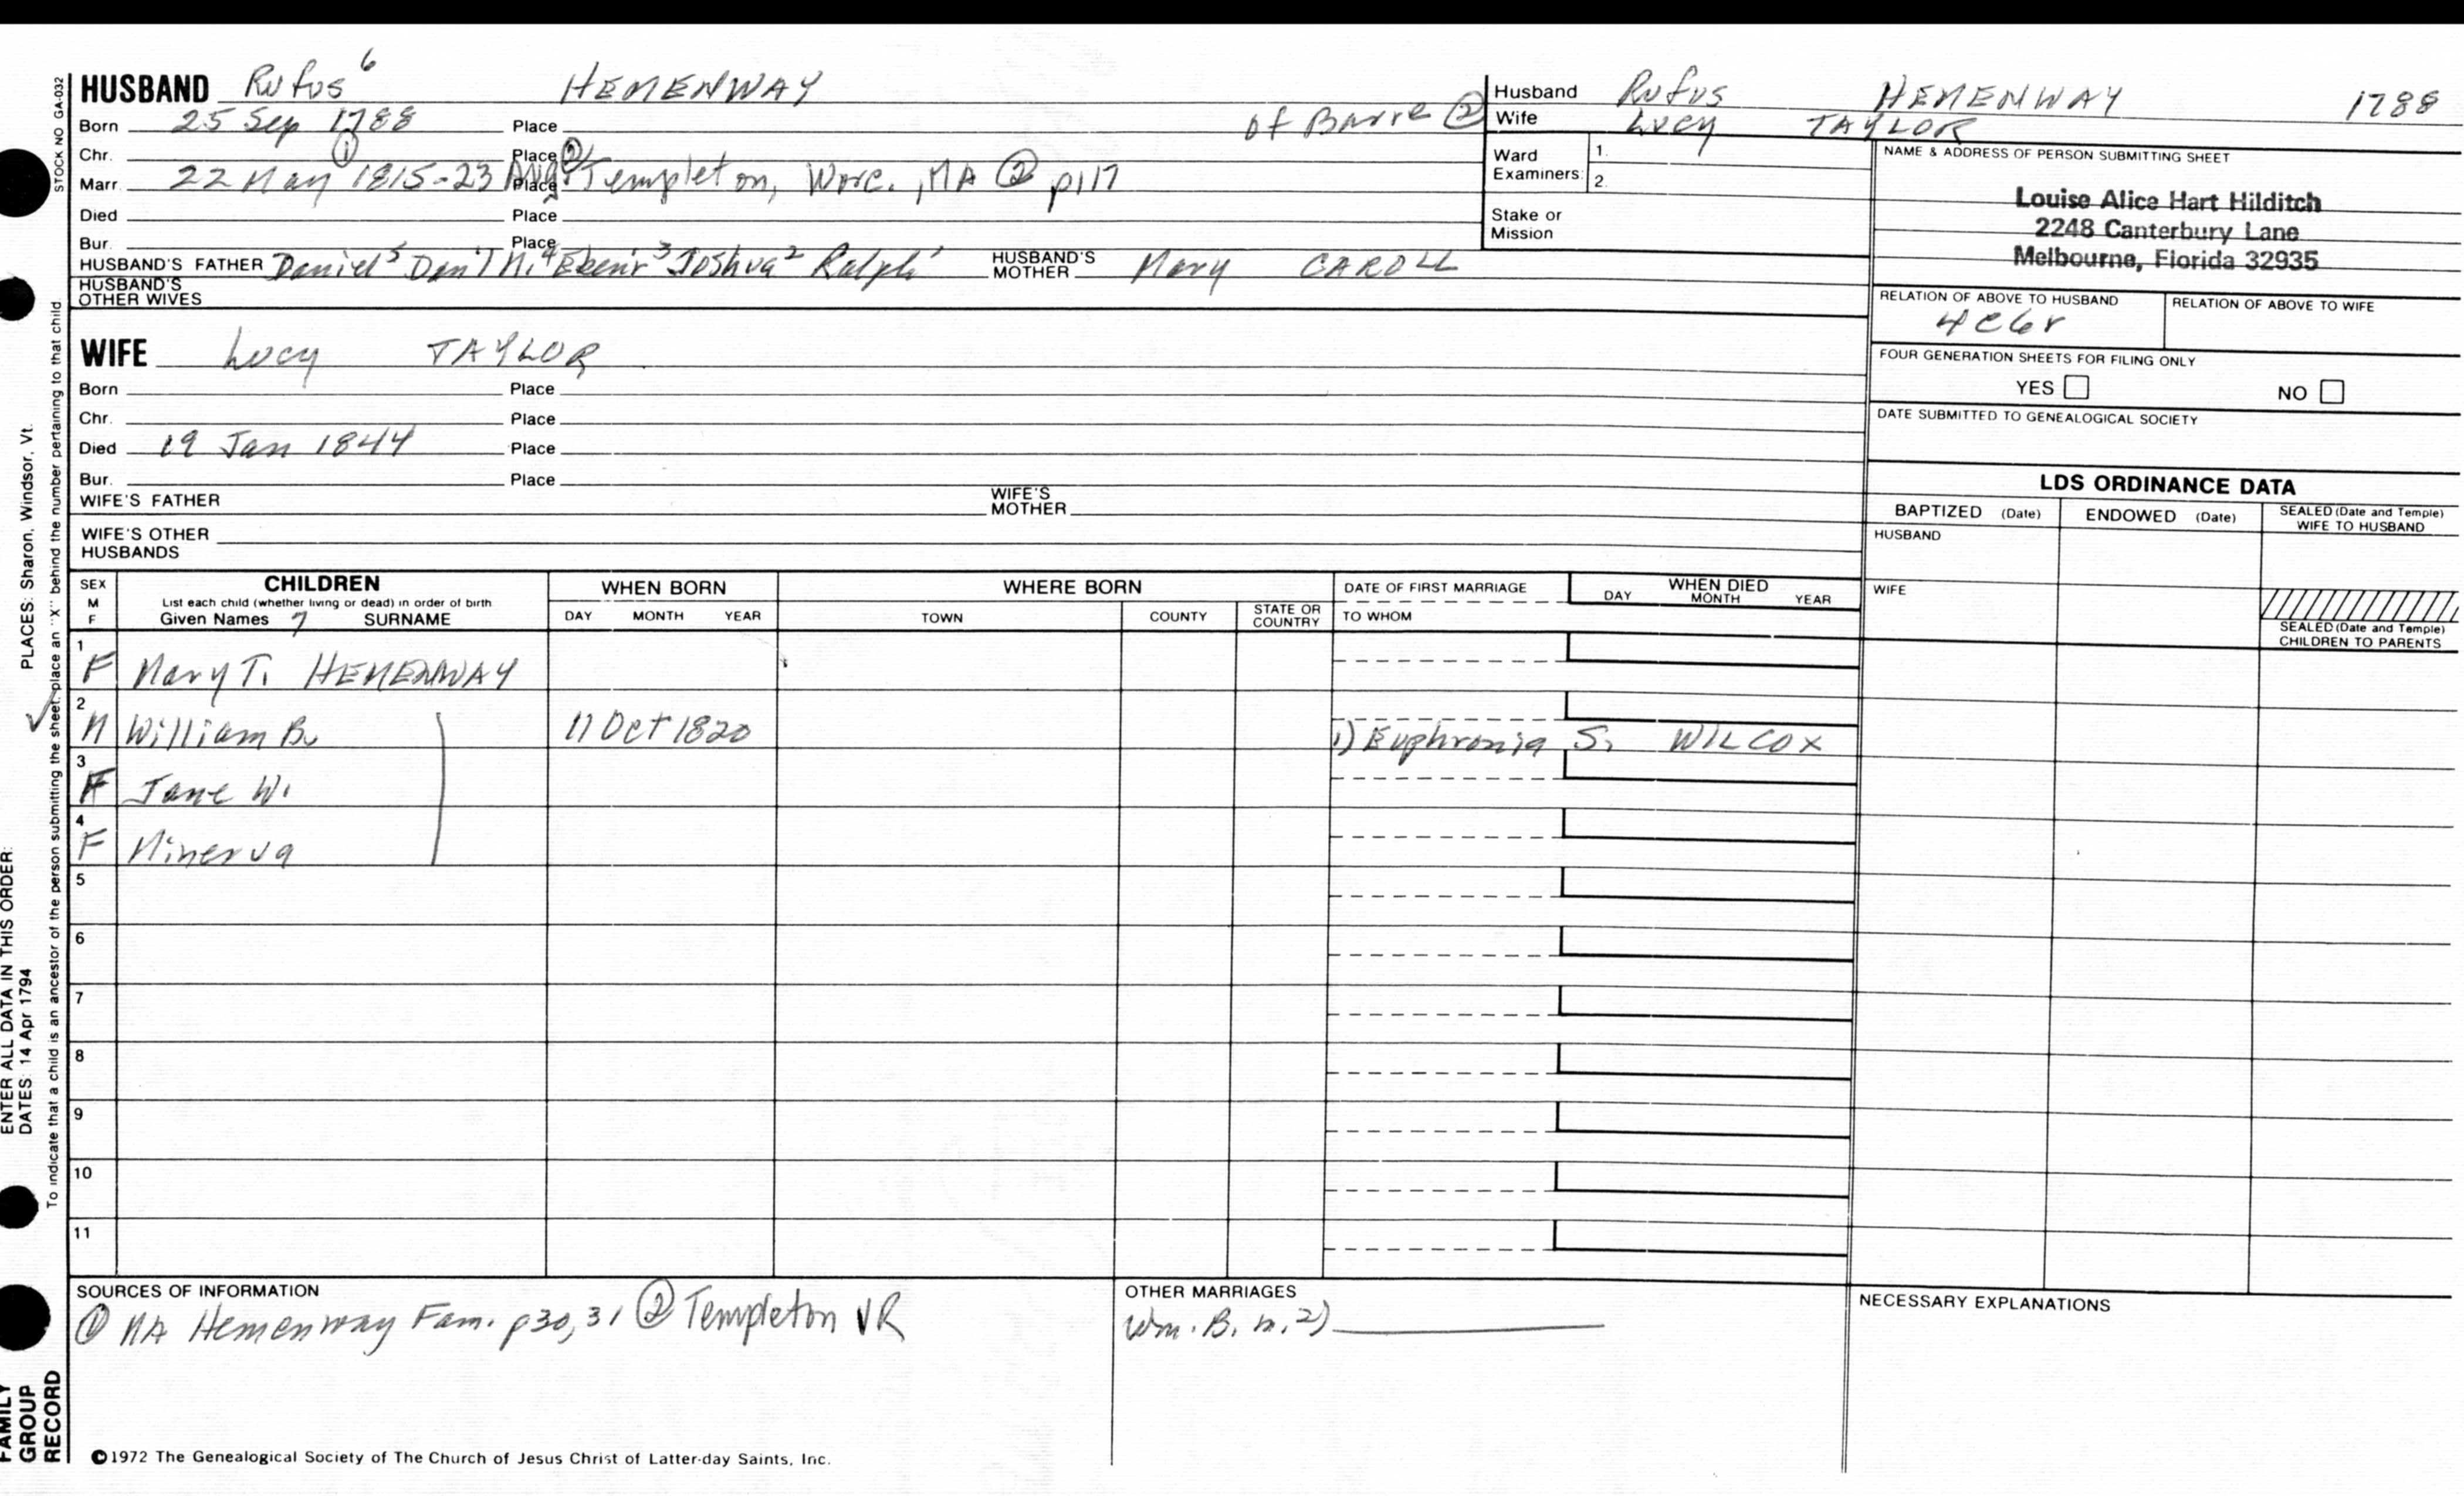 HUSBAND Rufus⁶ HEMENWAY
Born 25 Sep 1788 Place of Barre ②
Chr. ① Place ②
Marr. 22 May 1815-23 Aug Place Templeton, Worc., MA ② p117
Died Place
Bur. Place
HUSBAND'S FATHER Daniel⁵ Dan'l M.⁴ Eben'r³ Joshua² Ralph¹ HUSBAND'S MOTHER Mary CAROLL
HUSBAND'S OTHER WIVES
WIFE Lucy TAYLOR
Born Place
Chr. Place
Died 19 Jan 1844 Place
Bur. Place
WIFE'S FATHER WIFE'S MOTHER
WIFE'S OTHER HUSBANDS
Husband Rufus HEMENWAY 1788
Wife Lucy TAYLOR
Ward Examiners: 1. 2.
Stake or Mission
NAME & ADDRESS OF PERSON SUBMITTING SHEET
Louise Alice Hart Hilditch
2248 Canterbury Lane
Melbourne, Florida 32935
RELATION OF ABOVE TO HUSBAND RELATION OF ABOVE TO WIFE
4C6r
FOUR GENERATION SHEETS FOR FILING ONLY
YES NO
DATE SUBMITTED TO GENEALOGICAL SOCIETY
LDS ORDINANCE DATA
BAPTIZED (Date) ENDOWED (Date) SEALED (Date and Temple) WIFE TO HUSBAND
HUSBAND
WIFE
SEALED (Date and Temple) CHILDREN TO PARENTS
SEX M F
CHILDREN
List each child (whether living or dead) in order of birth
Given Names 7 SURNAME
WHEN BORN
DAY MONTH YEAR
WHERE BORN
TOWN COUNTY STATE OR COUNTRY
DATE OF FIRST MARRIAGE
TO WHOM
WHEN DIED
DAY MONTH YEAR
1 F Mary T. HEMENWAY
2 M William B. 11 Oct 1820 1) Euphronia S. WILCOX
3 F Jane W.
4 F Minerva
5
6
7
8
9
10
11
SOURCES OF INFORMATION
① MA Hemenway Fam. p30,31 ② Templeton VR
OTHER MARRIAGES
Wm. B. m. 2)
NECESSARY EXPLANATIONS
©1972 The Genealogical Society of The Church of Jesus Christ of Latter-day Saints, Inc.
STOCK NO. GA-032
To indicate that a child is an ancestor of the person submitting the sheet, place an "X" behind the number pertaining to that child
PLACES: Sharon, Windsor, Vt.
ENTER ALL DATA IN THIS ORDER:
DATES: 14 Apr 1794
FAMILY
GROUP
RECORD